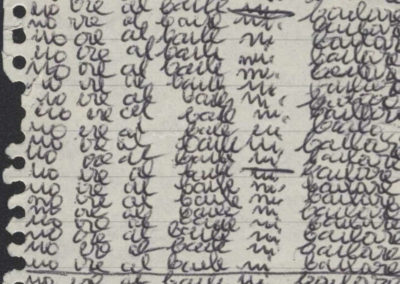 no ire al baile ni bailare
no ire al baile ni bailare
no ire al baile ni bailare
no ire al baile ni bailare
no ire al baile ni bailare
no ire al baile ni bailare
no ire al baile ni bailare
no ire al baile ni bailare
no ire al baile ni bailare
no ire al baile ni bailare
no ire al baile ni bailare
no ire al baile ni bailare
no ire al baile ni bailare
no ire al baile ni bailare
no ire al baile ni bailare
no ire al baile ni bailare
no ire al baile ni bailare